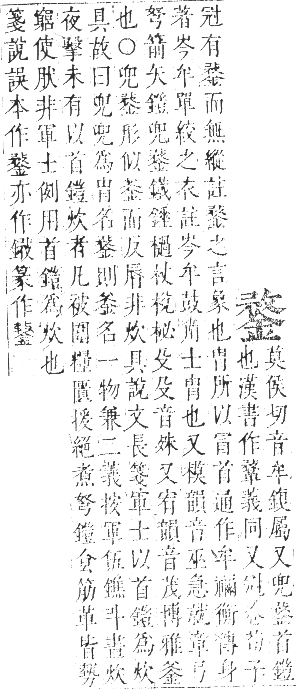 鍪
莫侯切音牟鍑屬又兜鍪首鎧
也漢書作鞪義同又冠名荀子
冠有鍪而無縰註鍪之言蒙也冑所以冒首通作牟禰衡傳身
著岑牟單絞之衣註岑牟鼓角士冑也又模韻音巫急就章弓
弩箭矢鎧兜鍪鐵錘檛杖梲柲殳殳音殊又宥韻音茂博雅釜
也〇兜鍪形似釜而反脣非炊具說文長箋軍士以首鎧爲炊
具故曰兜兜爲冑名鍪則釜名一物兼二義按軍伍鐎斗晝炊
夜擊未有以首鎧炊者凡被圍糧匱援絕煮弩鎧食筋革皆勢
窮使肰非軍士例用首鎧爲炊也
箋說誤本作鍪亦作篆作鍪